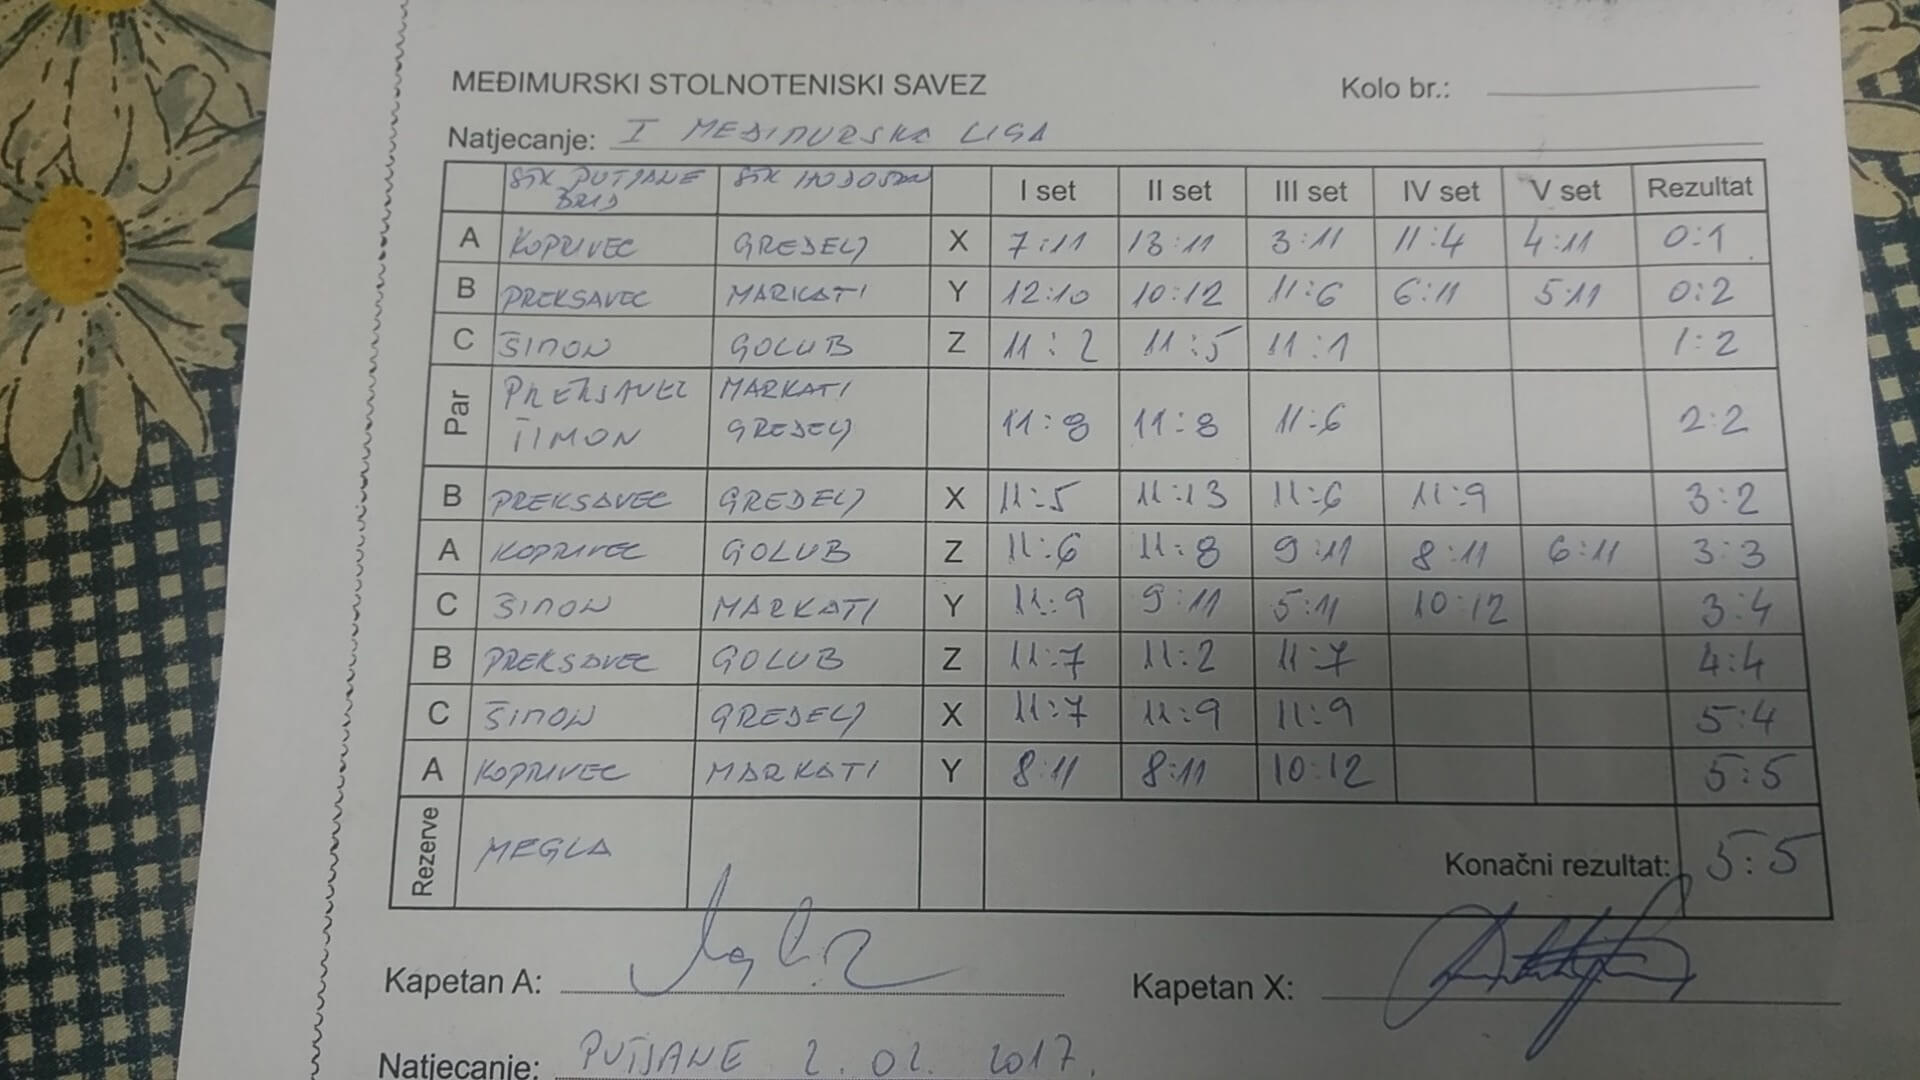 MEĐIMURSKI STOLNOTENISKI SAVEZ Kolo br.:
Natjecanje: I MEĐIMURSKA LIGA
STK PUTJANE BRID STK HODOŠAN I set II set III set IV set V set Rezultat
A KOPRIVEC GREDELJ X 7:11 13:11 3:11 11:4 4:11 0:1
B PREKSAVEC MARKATI Y 12:10 10:12 11:6 6:11 5:11 0:2
C ŠIMON GOLUB Z 11:2 11:5 11:1 1:2
Par PREKSAVEC MARKATI
ŠIMON GREDELJ 11:8 11:8 11:6 2:2
B PREKSAVEC GREDELJ X 11:5 11:13 11:6 11:9 3:2
A KOPRIVEC GOLUB Z 11:6 11:8 9:11 8:11 6:11 3:3
C ŠIMON MARKATI Y 11:9 9:11 5:11 10:12 3:4
B PREKSAVEC GOLUB Z 11:7 11:2 11:7 4:4
C ŠIMON GREDELJ X 11:7 11:9 11:9 5:4
A KOPRIVEC MARKATI Y 8:11 8:11 10:12 5:5
Rezerve MEGLA Konačni rezultat: 5:5
Kapetan A: Kapetan X:
Natjecanje: PUTJANE 2.02.2017.